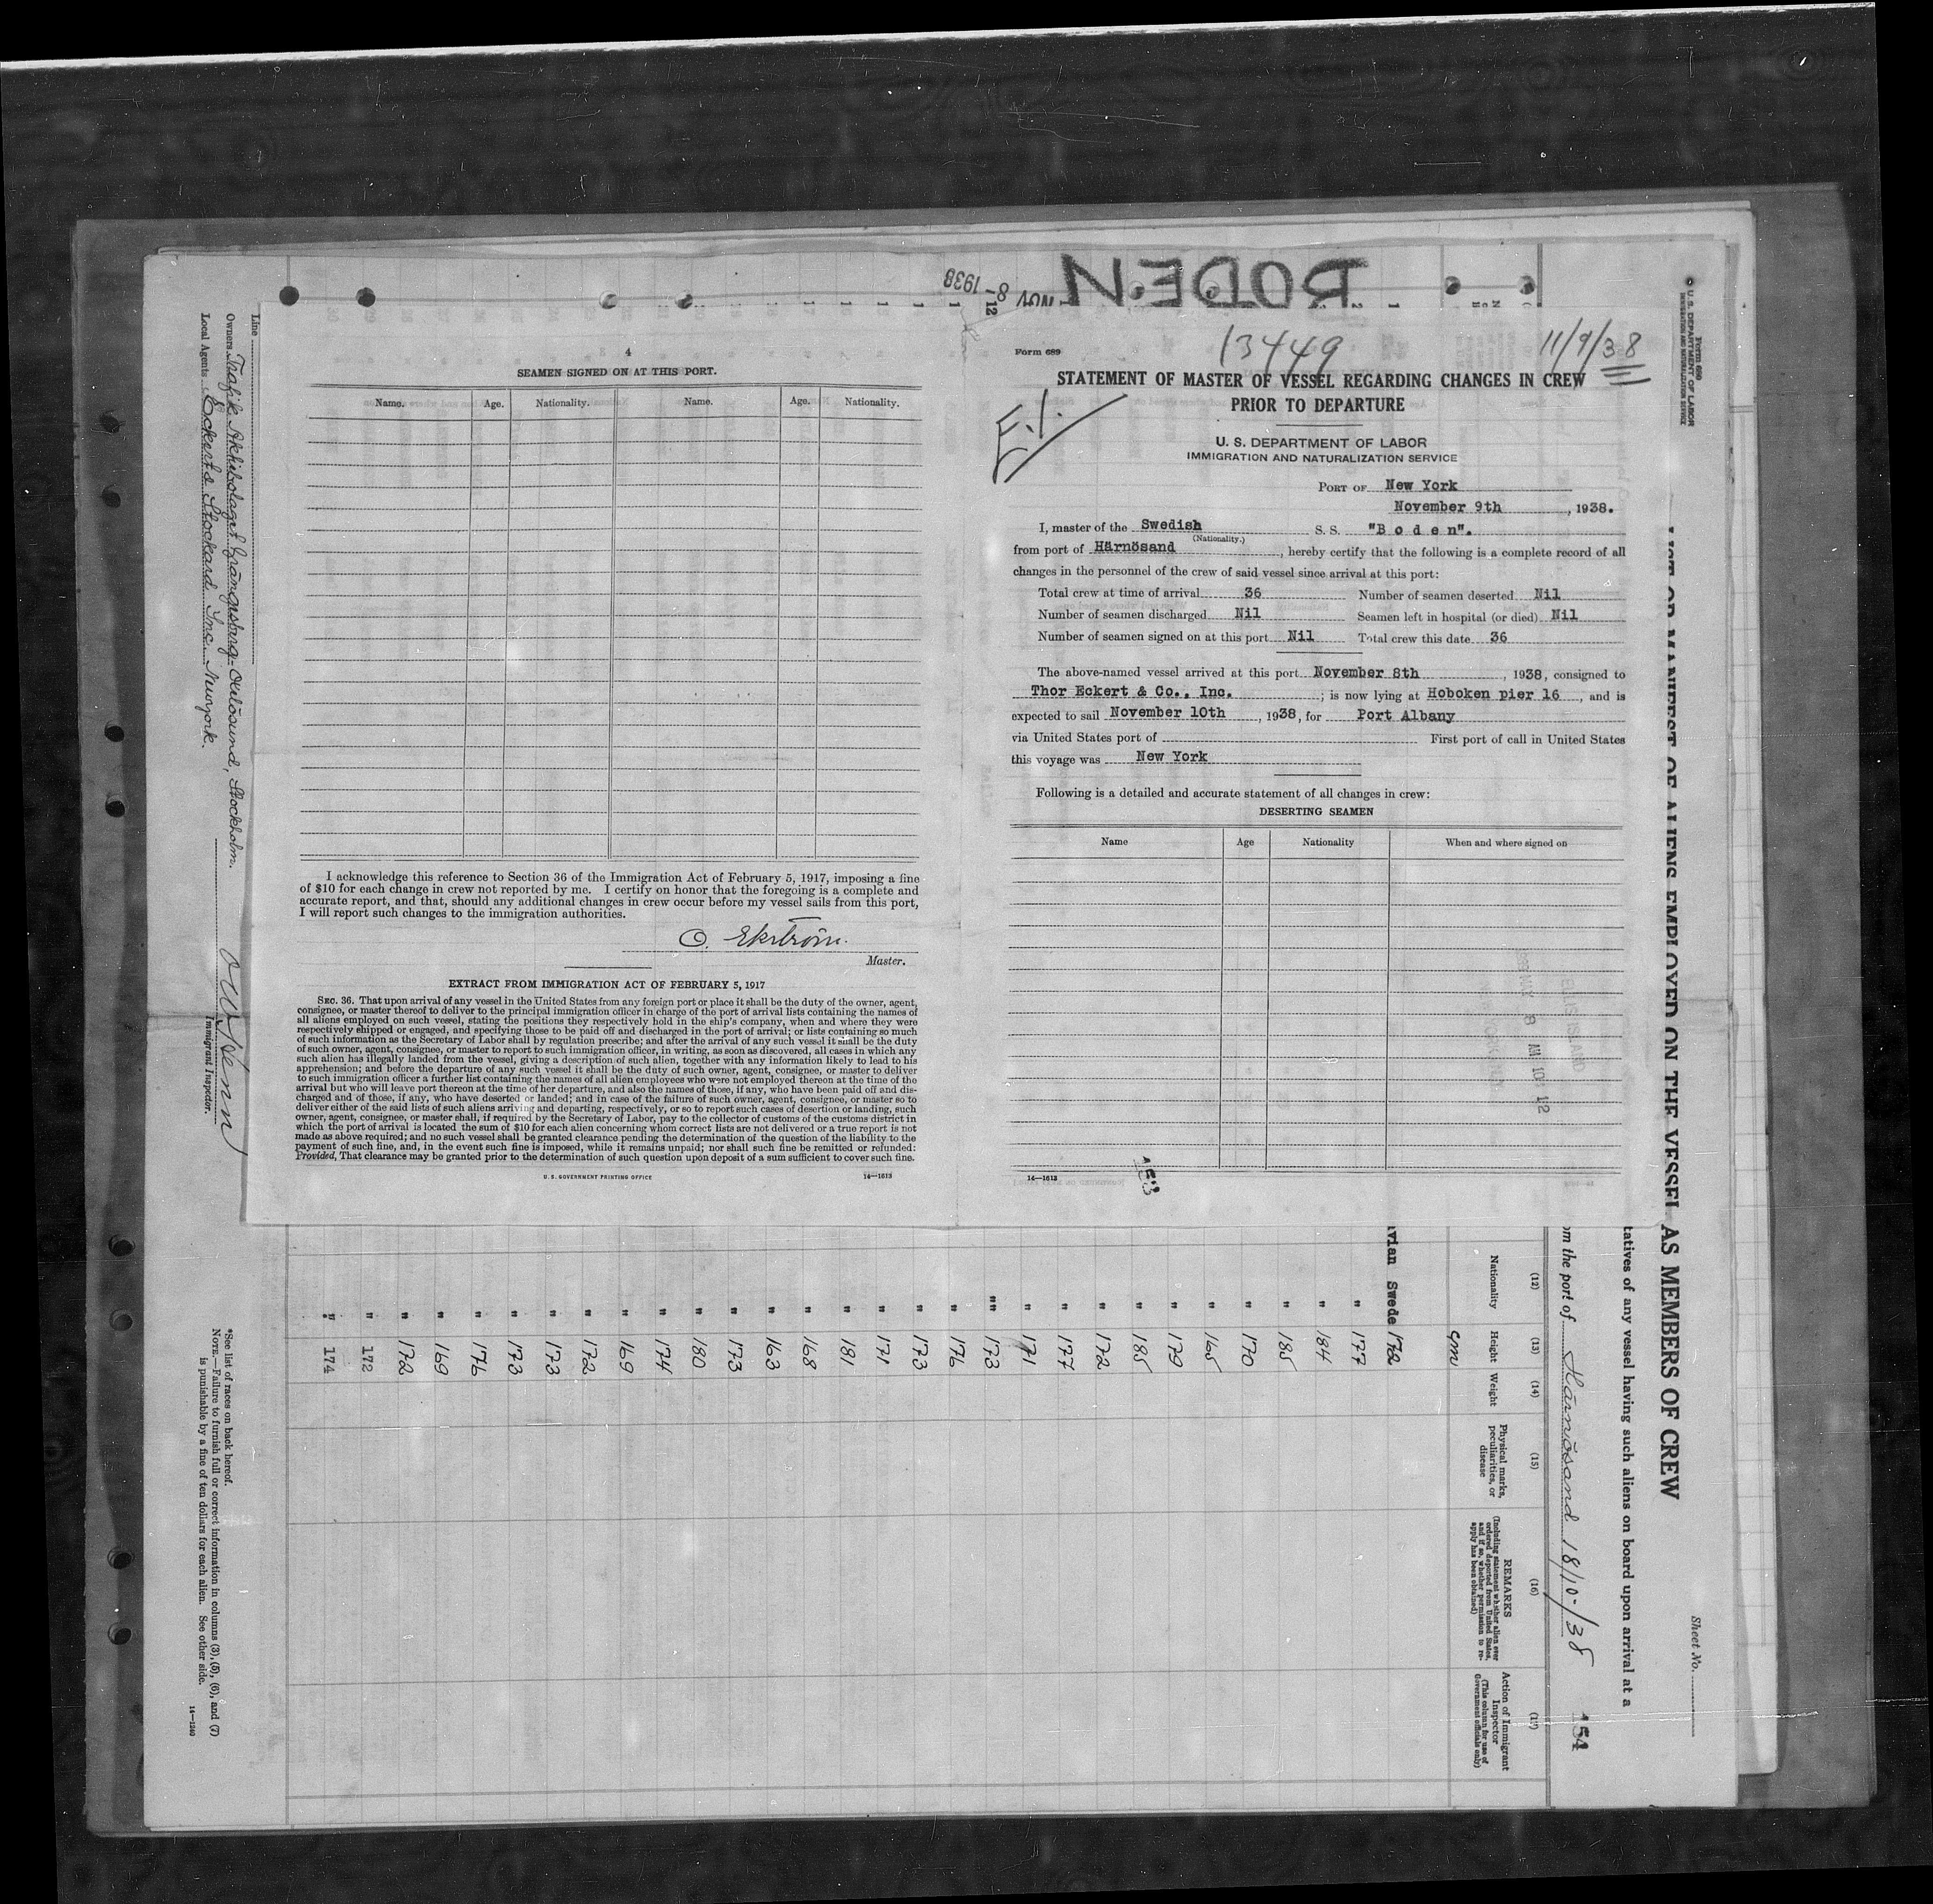 BODEN
NOV 8- 1938
12
4
SEAMEN SIGNED ON AT THIS PORT.
Name. Age. Nationality. Name. Age. Nationality.
I acknowledge this reference to Section 36 of the Immigration Act of February 5, 1917, imposing a fine
of $10 for each change in crew not reported by me. I certify on honor that the foregoing is a complete and
accurate report, and that, should any additional changes in crew occur before my vessel sails from this port,
I will report such changes to the immigration authorities.
O. Ekström.
Master.
EXTRACT FROM IMMIGRATION ACT OF FEBRUARY 5, 1917
SEC. 36. That upon arrival of any vessel in the United States from any foreign port or place it shall be the duty of the owner, agent,
consignee, or master thereof to deliver to the principal immigration officer in charge of the port of arrival lists containing the names of
all aliens employed on such vessel, stating the positions they respectively hold in the ship's company, when and where they were
respectively shipped or engaged, and specifying those to be paid off and discharged in the port of arrival; or lists containing so much
of such information as the Secretary of Labor shall by regulation prescribe; and after the arrival of any such vessel it shall be the duty
of such owner, agent, consignee, or master to report to such immigration officer, in writing, as soon as discovered, all cases in which any
such alien has illegally landed from the vessel, giving a description of such alien, together with any information likely to lead to his
apprehension; and before the departure of any such vessel it shall be the duty of such owner, agent, consignee, or master to deliver
to such immigration officer a further list containing the names of all alien employees who were not employed thereon at the time of the
arrival but who will leave port thereon at the time of her departure, and also the names of those, if any, who have been paid off and dis-
charged and of those, if any, who have deserted or landed; and in case of the failure of such owner, agent, consignee, or master so to
deliver either of the said lists of such aliens arriving and departing, respectively, or so to report such cases of desertion or landing, such
owner, agent, consignee, or master shall, if required by the Secretary of Labor, pay to the collector of customs of the customs district in
which the port of arrival is located the sum of $10 for each alien concerning whom correct lists are not delivered or a true report is not
made as above required; and no such vessel shall be granted clearance pending the determination of the question of the liability to the
payment of such fine, and, in the event such fine is imposed, while it remains unpaid; nor shall such fine be remitted or refunded:
Provided, That clearance may be granted prior to the determination of such question upon deposit of a sum sufficient to cover such fine.
U. S. GOVERNMENT PRINTING OFFICE 14—1613
Form 689
13449
11/9/38
STATEMENT OF MASTER OF VESSEL REGARDING CHANGES IN CREW
PRIOR TO DEPARTURE
E.I.
U. S. DEPARTMENT OF LABOR
IMMIGRATION AND NATURALIZATION SERVICE
PORT OF New York
November 9th, 1938.
I, master of the Swedish S. S. "B o d e n".
(Nationality.)
from port of Härnösand, hereby certify that the following is a complete record of all
changes in the personnel of the crew of said vessel since arrival at this port:
Total crew at time of arrival 36 Number of seamen deserted Nil
Number of seamen discharged Nil Seamen left in hospital (or died) Nil
Number of seamen signed on at this port Nil Total crew this date 36
The above-named vessel arrived at this port November 8th, 1938, consigned to
Thor Eckert & Co., Inc.; is now lying at Hoboken pier 16, and is
expected to sail November 10th, 1938, for Port Albany
via United States port of First port of call in United States
this voyage was New York
Following is a detailed and accurate statement of all changes in crew:
DESERTING SEAMEN
Name Age Nationality When and where signed on
ELLIS ISLAND
8 AM 10 12
14—1613
153
Form 680
U. S. DEPARTMENT OF LABOR
IMMIGRATION AND NATURALIZATION SERVICE
Sheet No.
LIST OR MANIFEST OF ALIENS EMPLOYED ON THE VESSEL AS MEMBERS OF CREW
tatives of any vessel having such aliens on board upon arrival at a
om the port of Härnösand 18/10-/38
154
(12) (13) (14) (15) (16) (17)
Nationality
Height
Weight
Physical marks, peculiarities, or disease
REMARKS
(Including statement whether alien ever ordered deported from United States, and if so, whether permission to reapply has been obtained)
Action of Immigrant Inspector
(This column for use of Government officials only)
cm
vian Swede 172
" 177
" 184
" 185
" 170
" 165
" 179
" 185
" 172
" 177
" 171
"" 173
" 176
" 173
" 171
" 181
" 168
" 163
" 173
" 180
" 174
" 169
" 172
" 173
" 173
" 176
" 169
" 172
" 172
" 174
Line
Owners Trafik Aktiebolaget Grängesberg-Oxelösund, Stockholm.
Local Agents Eckerts Stockard Inc. Newyork.
Immigrant Inspector.
*See list of races on back hereof.
NOTE.—Failure to furnish full or correct information in columns (3), (5), (6), and (7)
is punishable by a fine of ten dollars for each alien. See other side.
14—1240